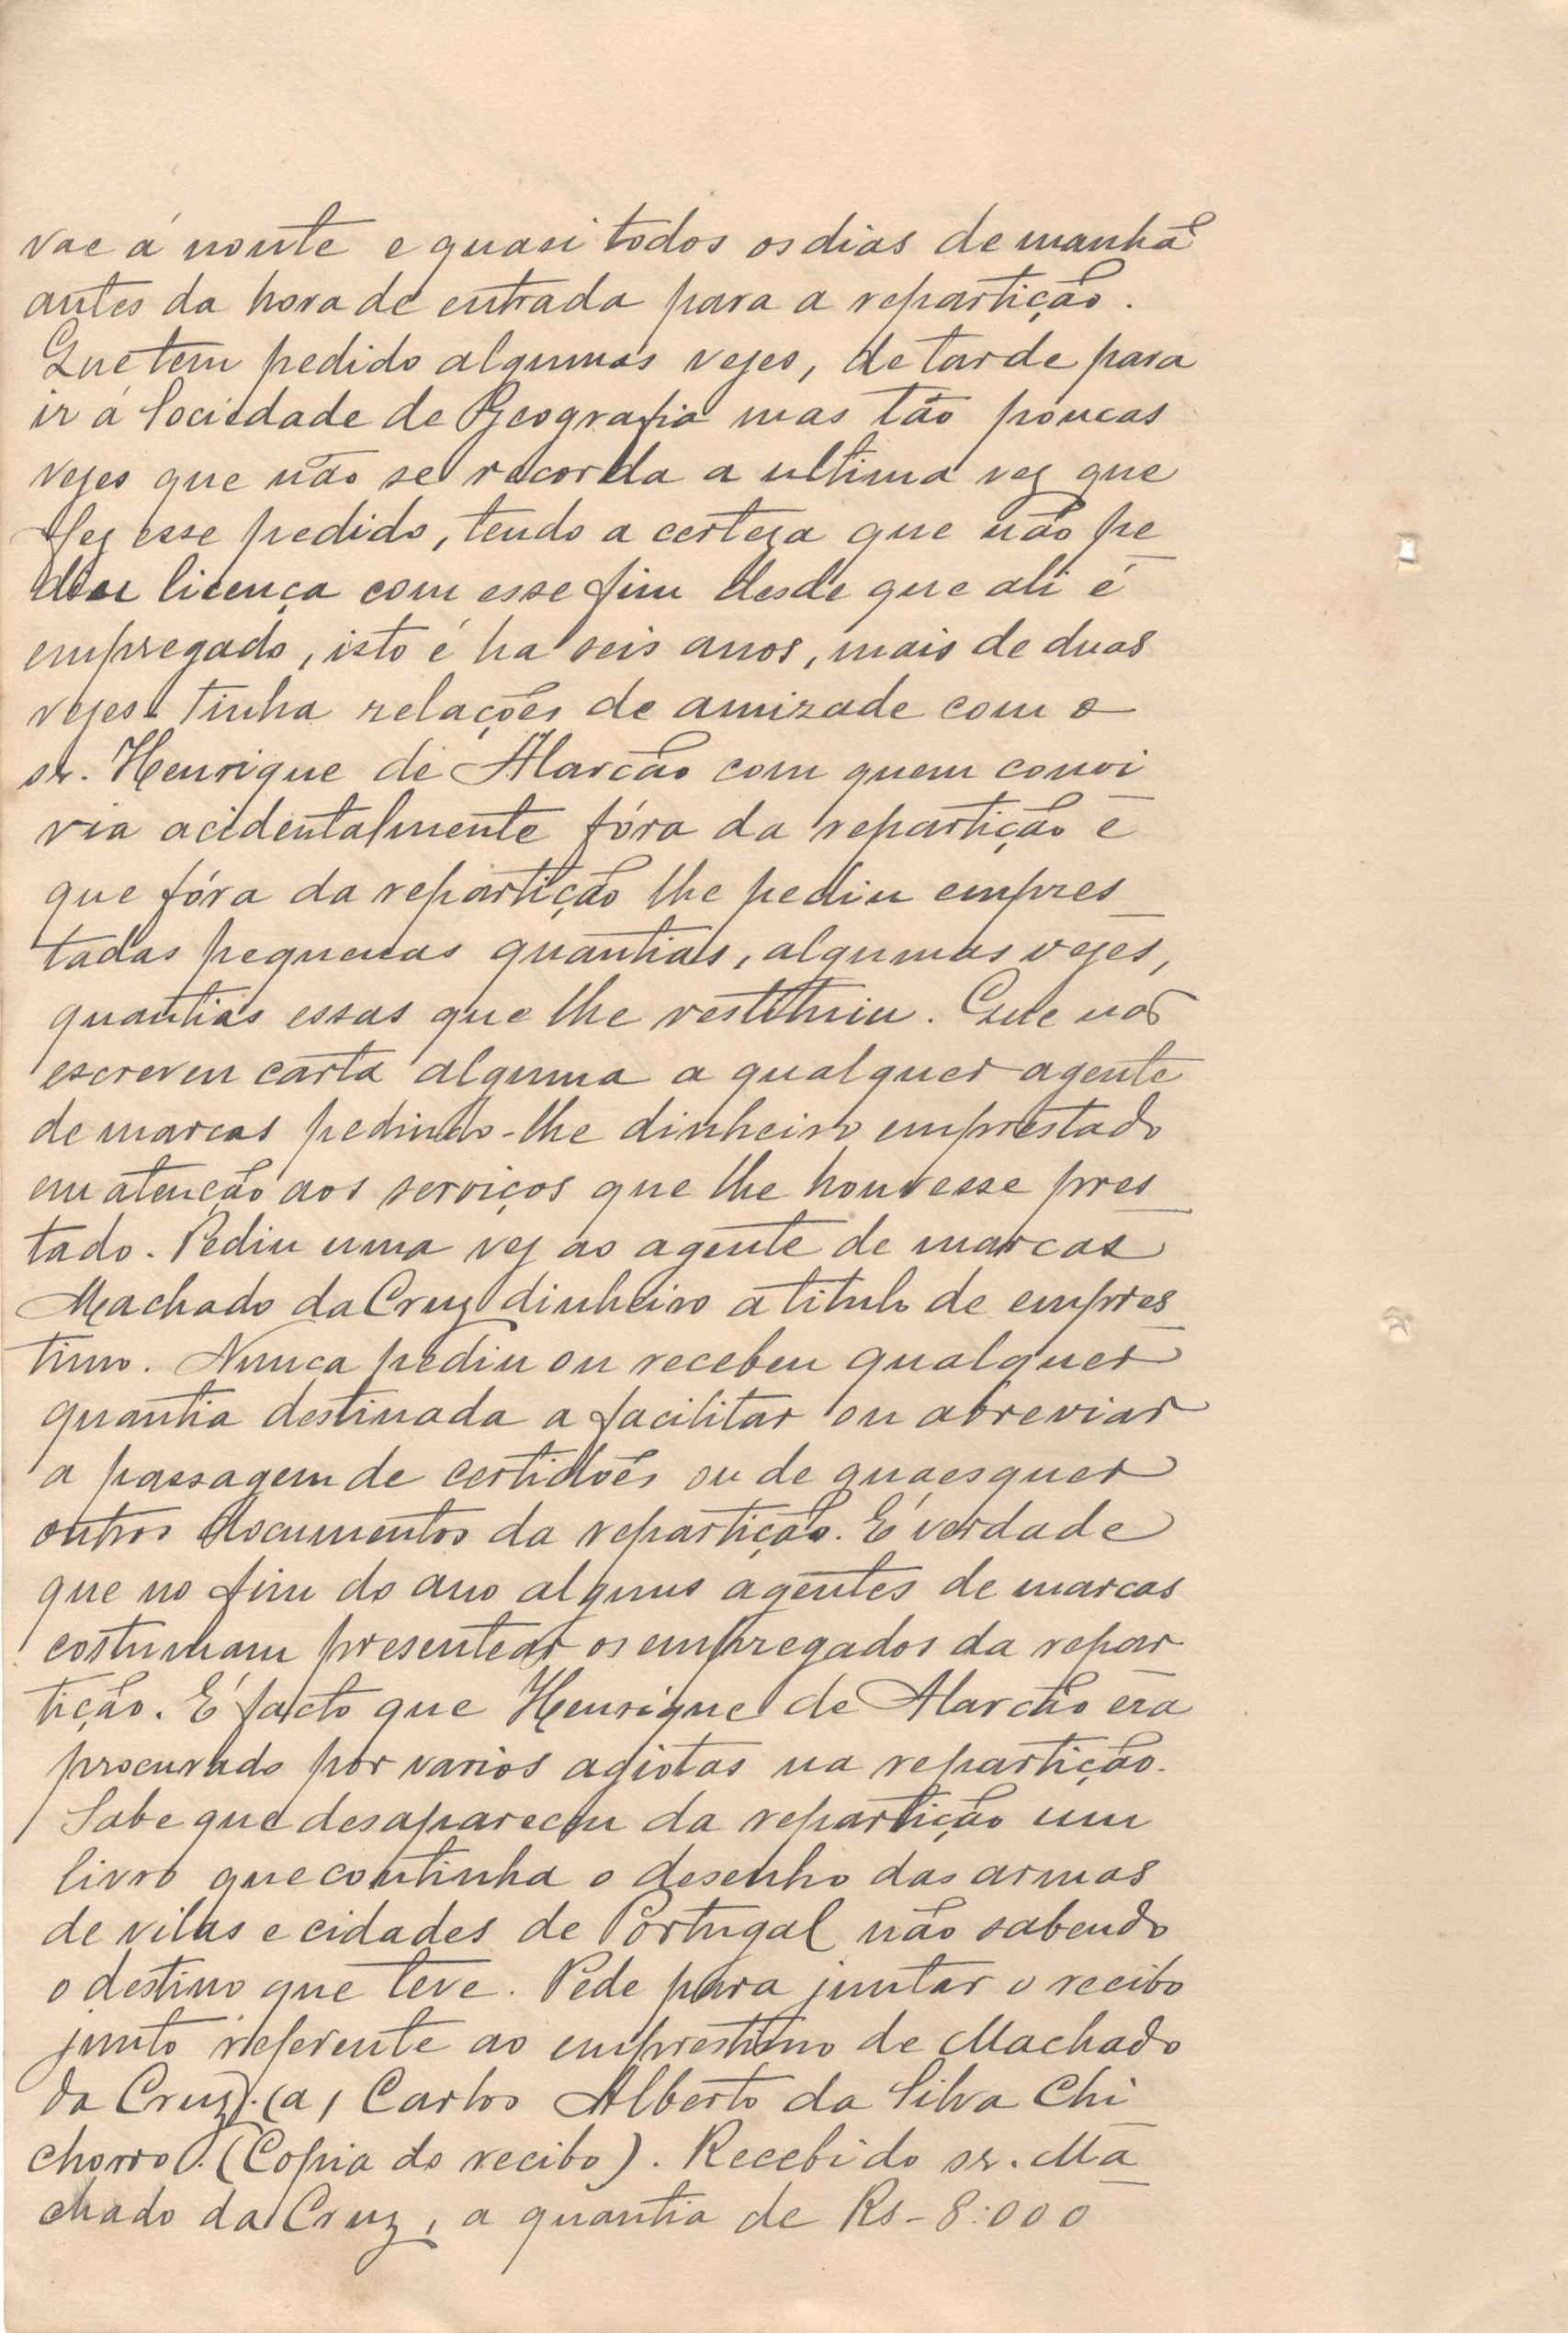 vae á noute e quasi todos os dias de manhã
antes da hora de entrada para a repartição.
Que tem pedido algumas vezes, de tarde para
ir á Sociedade de Geografia mas tão poucas
vezes que não se recorda a ultima vez que
fez esse pedido, tendo a certeza que não pe
diu licença com esse fim desde que ali é
empregado, isto é ha seis anos, mais de duas
vezes. Tinha relações de amizade com o
sr. Henrique de Alarcão com quem convi
via acidentalmente fóra da repartição e
que fóra da repartição lhe pediu empres
tadas pequenas quantias, algumas vezes,
quantias essas que lhe restituiu. Que não
escreveu carta alguma a qualquer agente
de marcas pedindo-lhe dinheiro emprestado
em atenção aos serviços que lhe houvesse pres
tado. Pediu uma vez ao agente de marcas
Machado da Cruz dinheiro a titulo de empres
timo. Nunca pediu ou recebeu qualquer
quantia destinada a facilitar ou abreviar
a passagem de certidões ou de quaesquer
outros documentos da repartição. É verdade
que no fim do ano alguns agentes de marcas
costumam presentear os empregados da repar
tição. É facto que Henrique de Alarcão era
procurado por varios agiotas na repartição.
Sabe que desapareceu da repartição um
livro que continha o desenho das armas
de vilas e cidades de Portugal não sabendo
o destino que teve. Pede para juntar o recibo
junto referente ao emprestimo de Machado
da Cruz). (a, Carlos Alberto da Silva Chi
chorro. (Copia do recibo). Recebi do sr. Ma
chado da Cruz, a quantia de Rs - 8:000